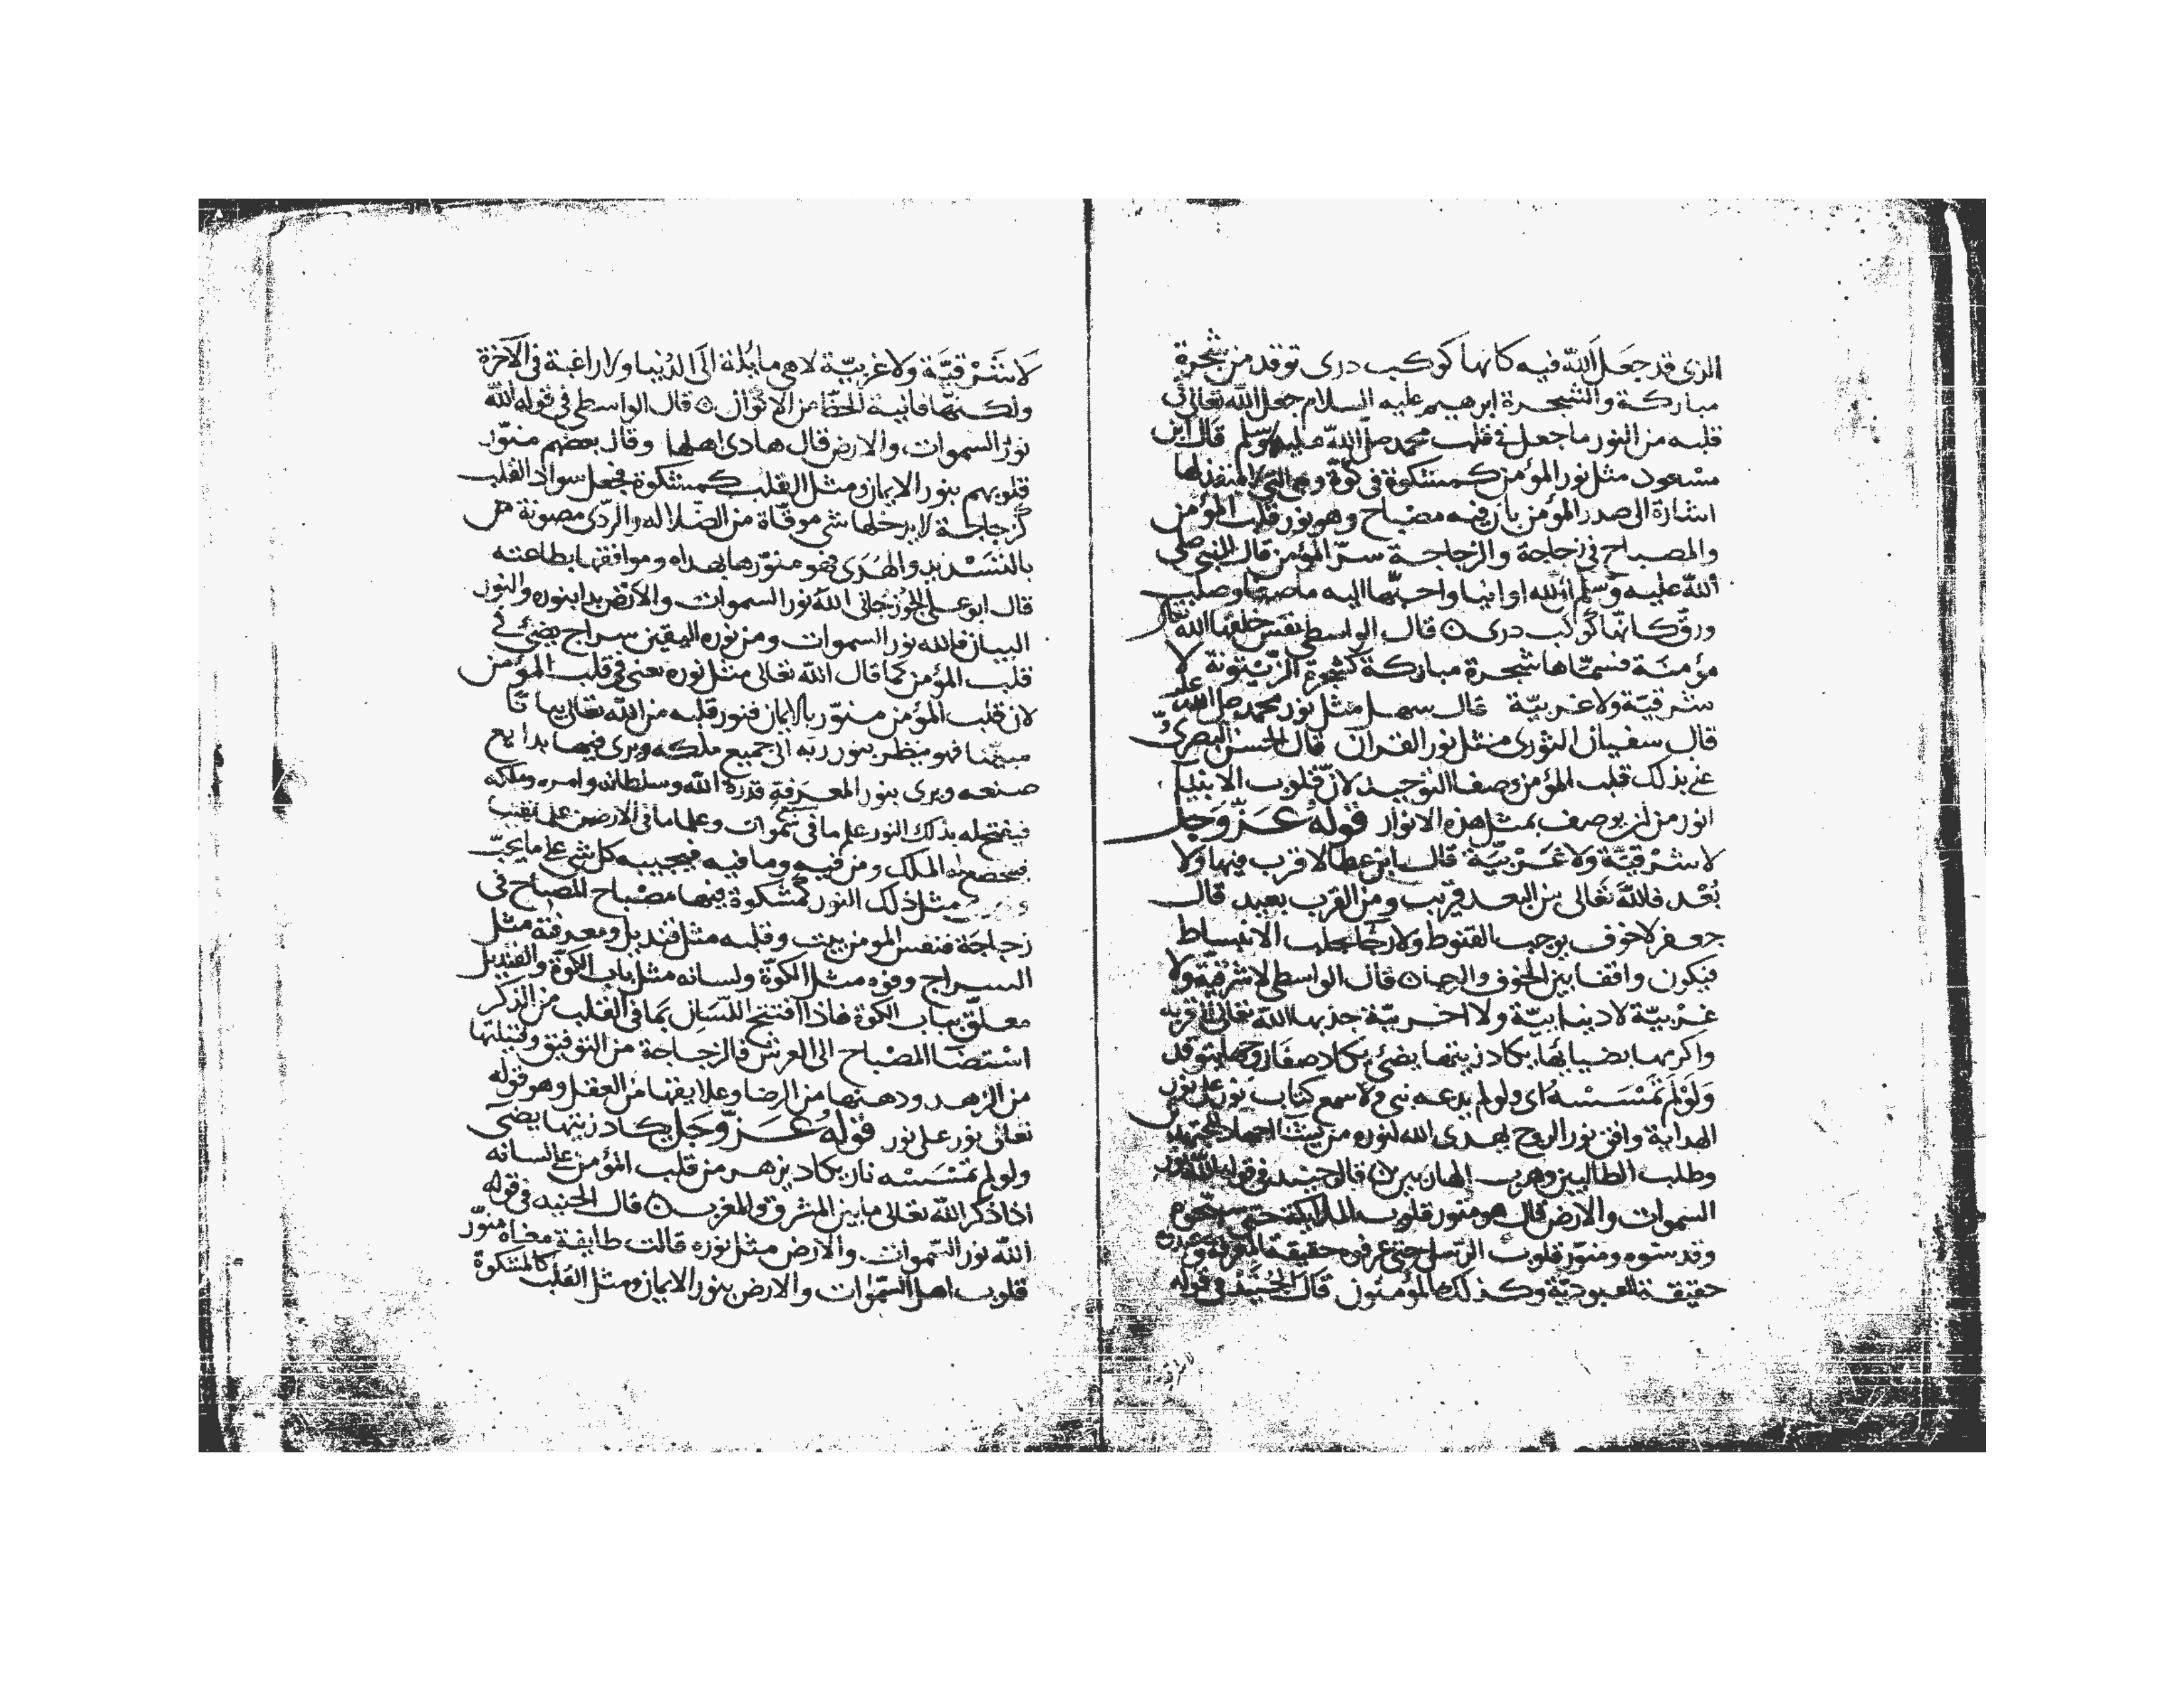 الذي قد جعل الله فيه كانها كوكب درى توقد من شجرة
مباركة والشجرة ابرهيم عليه السلام جعل الله تعالى في
قلبه من النور ما جعل في قلب محمد صلى الله عليه وسلم قال ابن
مسعود مثل نور المؤمن كمشكوة في كوة وهي التي لا منفذ لها
اشارة الى صدر المؤمن بان فيه مصباح وهو نور قلب المؤمن
والمصباح في زجاجة والزجاجة سر المؤمن قال النبي صلى
الله عليه وسلم ان لله اواني واحبها اليه ما صفا وصلب
ورق كانها كوكب درى قال الواسطي نفس خلقها الله تعالى
مؤمنة فسماها شجرة مباركة كشجرة الزيتونة لا
شرقية ولا غربية قال سهل مثل نور محمد صلى الله عليه
قال سفيان الثورى مثل نور القرآن قال الحسن البصري
عنى بذلك قلب المؤمن وصفا التوحيد لان قلوب الانبيا
انور من ان يوصف بمثل هذه الانوار قوله عز وجل
لا شرقية ولا غربية قال ابن عطا لا قرب فيها ولا
بعد فالله تعالى من البعد قريب ومن القرب بعيد قال
جعفر لا خوف يوجب القنوط ولا رجا يجلب الانبساط
فيكون واقفا بين الخوف والرجا قال الواسطي لا شرقية ولا
غربية لا دنيايية ولا اخريية جذبها الله تعالى الى قربه
واكرمها بضيايها يكاد زيتها يضئ يكاد صفا روحها يتوقد
ولو لم تمسسه اى ولو لم يدعه نبي ولا سمع كتاب نور على نور
الهداية وافق نور الروح يهدى الله لنوره من يشا
وطلب الطالبين وهرب الهاربين قال جنيد في قوله الله نور
السموات والارض قال هو منور قلوب الملايكة حتى سبحوه
وقدسوه ومنور قلوب الرسل حتى عرفوه حقيقة المعرفة وعبدوه
حقيقة العبودية وكذلك المؤمنون قال الجنيد في قوله
لا شرقية ولا غربية لا هي مايلة الى الدنيا ولا راغبة في الآخرة
ولكنها فانية الحظ من الاكوان قال الواسطي في قوله الله
نور السموات والارض قال هادى اهلها وقال بعضهم منور
قلوبهم بنور الايمان ومثل القلب كمشكوة فجعل سواد القلب
كزجاجة لا يدخلها شى موقاة من الضلالة والردى مصونة
بالتسديد والهدى فهو منورها بهداه وموافقها بطاعته
قال ابو على الجوزجاني الله نور السموات والارض بدا بنوره والنور
البيان فالله نور السموات ومن نوره اليقين سراج يضئ في
قلب المؤمن كما قال الله تعالى مثل نوره يعنى في قلب المؤمن
لان قلب المؤمن منور بالايمان فنور قلبه من الله تعالى بيانا
مبينا فهو ينظر بنور ربه الى جميع ملكه ويرى فيها بدايع
صنعه ويرى بنور المعرفة قدرة الله وسلطانه وامره وملكه
فيفتح له بذلك النور علم ما في سبع سموات وعلم ما في الارضين علما يقينا
فيخضع له الملك ومن فيه وما فيه فيجيبه كل شى على ما يحب
مثل ذلك النور كمشكوة فيها مصباح المصباح في
زجاجة فنفس المومن بيت وقلبه مثل قنديل ومعرفته مثل
السراج وفوه مثل الكوة ولسانه مثل باب الكوة والقنديل
معلق بباب الكوة فاذا افتتح اللسان بما في القلب من الذكر
استضا المصباح الى العرش فالزجاجة من التوفيق وفتيلتها
من الزهد ودهنها من الرضا وعلايقها من العقل وهو قوله
تعالى نور على نور قوله عز وجل يكاد زيتها يضى
ولو لم تمسسه نار يكاد يزهر من قلب المؤمن على لسانه
اذا ذكر الله تعالى ما بين المشرق والمغرب قال الجنيد في قوله
الله نور السموات والارض مثل نوره قالت طايفة معناه منور
قلوب اهل السموات والارض بنور الايمان ومثل القلب كالمشكوة